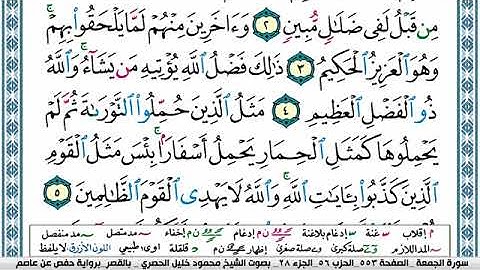 مِن قَبْلُ لَفِى ضَلَـٰلٍ مُّبِينٍ ٢ وَءَاخَرِينَ مِنْهُمْ لَمَّا يَلْحَقُوا۟ بِهِمْ ۚ
وَهُوَ ٱلْعَزِيزُ ٱلْحَكِيمُ ٣ ذَٰلِكَ فَضْلُ ٱللَّهِ يُؤْتِيهِ مَن يَشَآءُ ۚ وَٱللَّهُ
ذُو ٱلْفَضْلِ ٱلْعَظِيمِ ٤ مَثَلُ ٱلَّذِينَ حُمِّلُوا۟ ٱلتَّوْرَىٰةَ ثُمَّ لَمْ
يَحْمِلُوهَا كَمَثَلِ ٱلْحِمَارِ يَحْمِلُ أَسْفَارًۢا ۚ بِئْسَ مَثَلُ ٱلْقَوْمِ
ٱلَّذِينَ كَذَّبُوا۟ بِـَٔايَـٰتِ ٱللَّهِ ۚ وَٱللَّهُ لَا يَهْدِى ٱلْقَوْمَ ٱلظَّـٰلِمِينَ ٥
م إقلاب س غنة س إدغام بلاغنة ن م إدغام ن م إخفاء ~ مد متصل ~ مد منفصل
~ المد اللازم صلة كبرى صلة صغرى إظهار ن م قلقلة اوى طبيعي اللون الأزرق لا يلفظ
سورة الجمعة _ الصفحة ٥٥٣_ الحزب ٥٦_ الجزء ٢٨ _ بصوت الشيخ محمود خليل الحصري _ بالقصر_برواية حفص عن عاصم